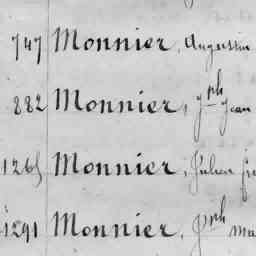 747 Monnier, Augustin
882 Monnier, Jph Jean
1265 Monnier, Julien
1291 Monnier, Jph